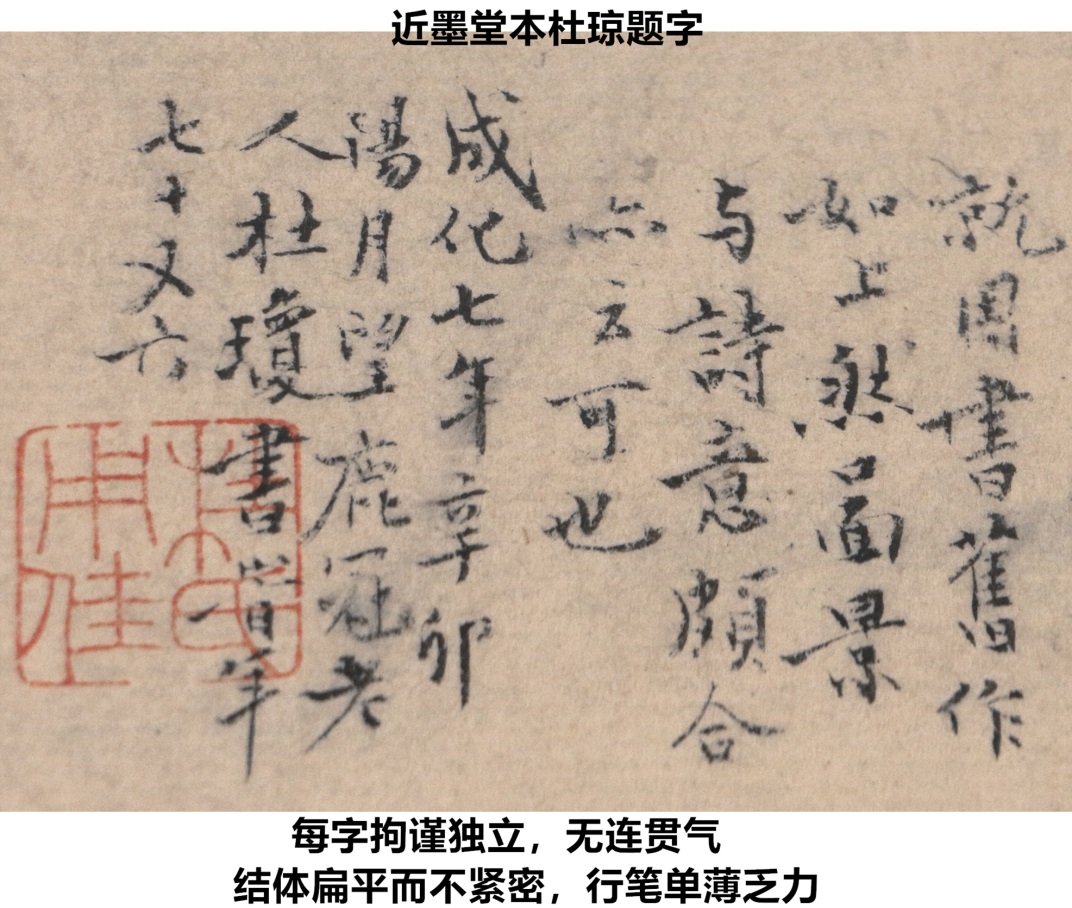 近墨堂本杜琼题字
就因書舊作
如上然啚景
与詩意頗合
亦云可也
成化七年辛卯
陽月望鹿冠老
人杜瓊書峕年
七十又六
杜氏
用佳
每字拘谨独立，无连贯气
结体扁平而不紧密，行笔单薄乏力